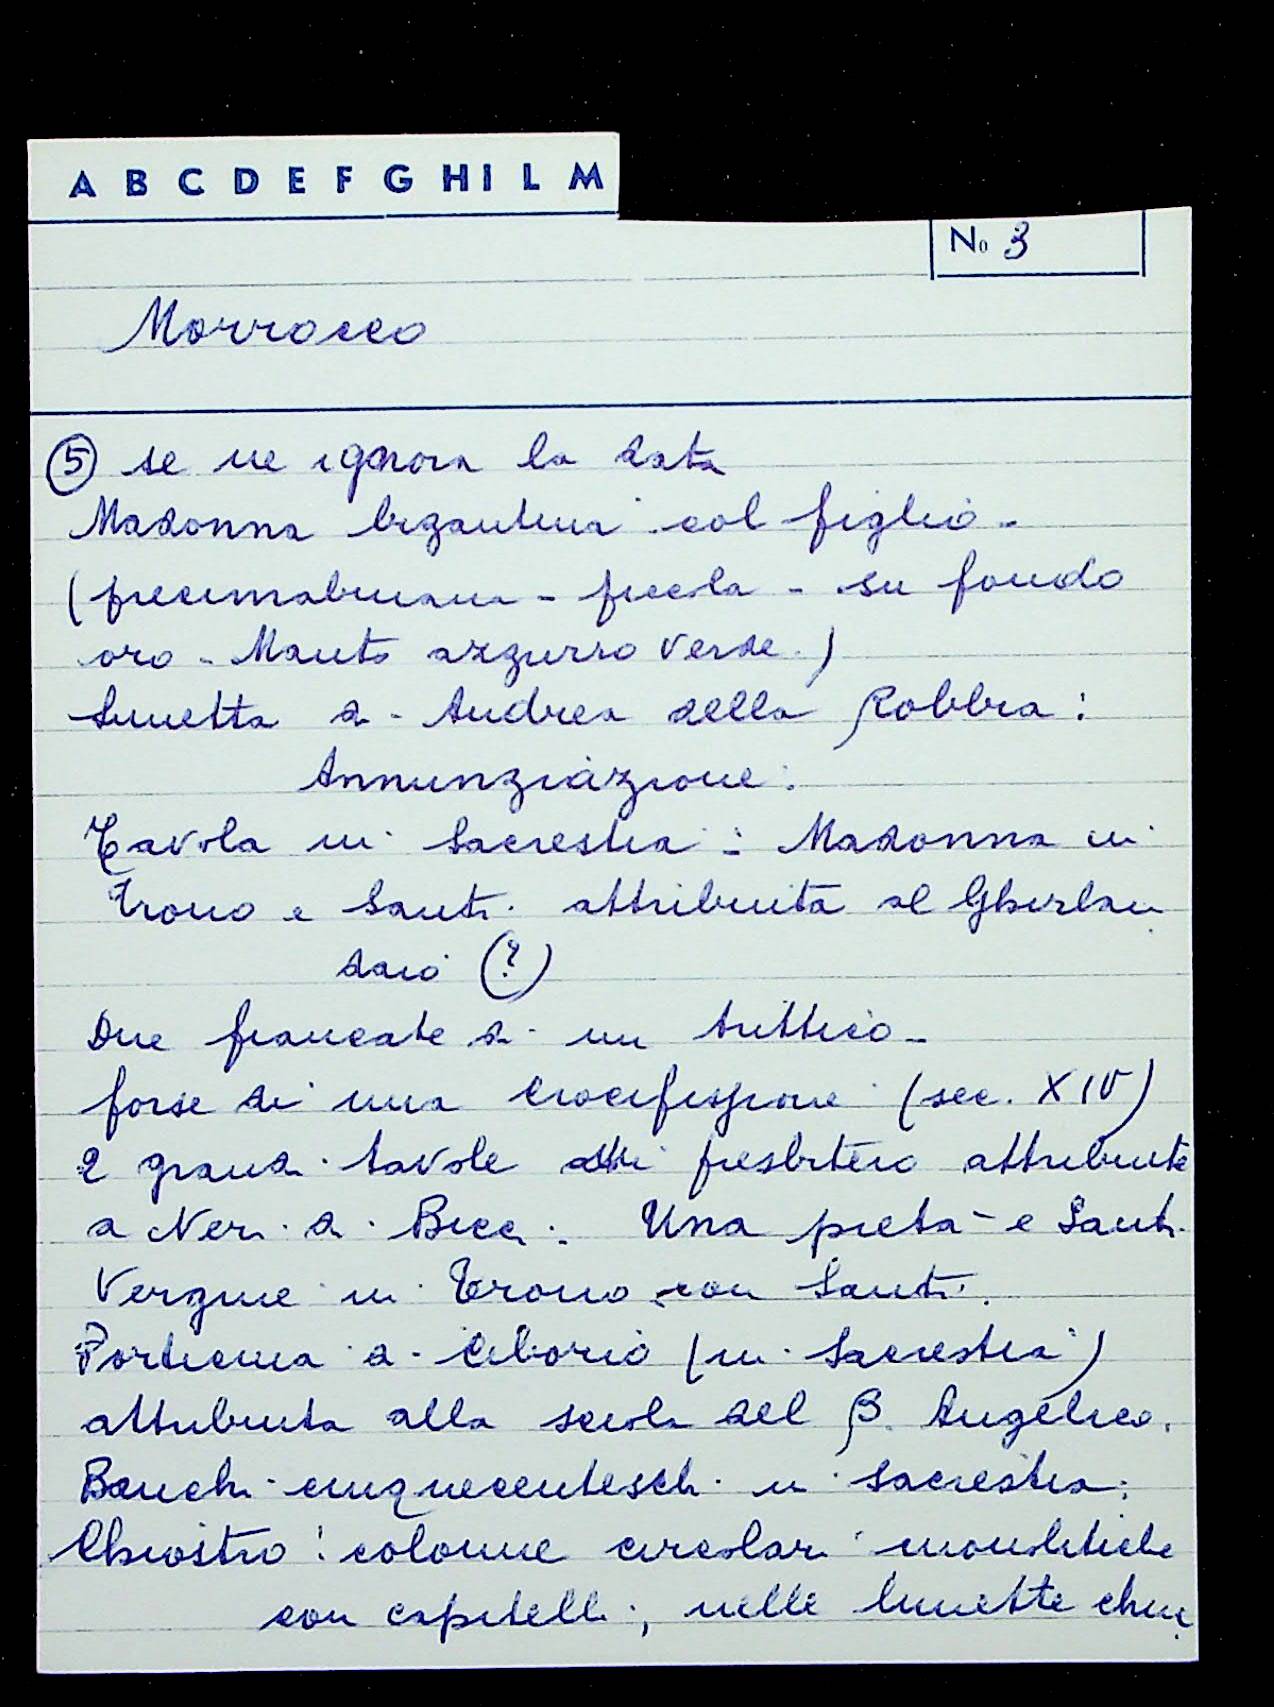 A B C D E F G H I L M
No 3
Morrocco
⑤ se ne ignora la data
Madonna bizantina col figlio -
(precimabuiana - piccola - su fondo
oro - Manto azzurro verde.)
Lunetta di Andrea della Robbia:
Annunziazione.
Tavola in Sacrestia: Madonna in
Trono e Santi attribuita al Ghirlan
daio (?)
Due fiancate di un trittico -
forse di una Crocifissione (sec. XIV)
2 grandi tavole presbiterio attribuite
a Neri di Bicci. Una pietà e Santi
Vergine in Trono con Santi.
Porticina di Ciborio (in Sacrestia)
attribuita alla scuola del B. Angelico.
Banchi cinquecenteschi in Sacrestia.
Chiostro: colonne circolari monolitiche
con capitelli; nelle lunette